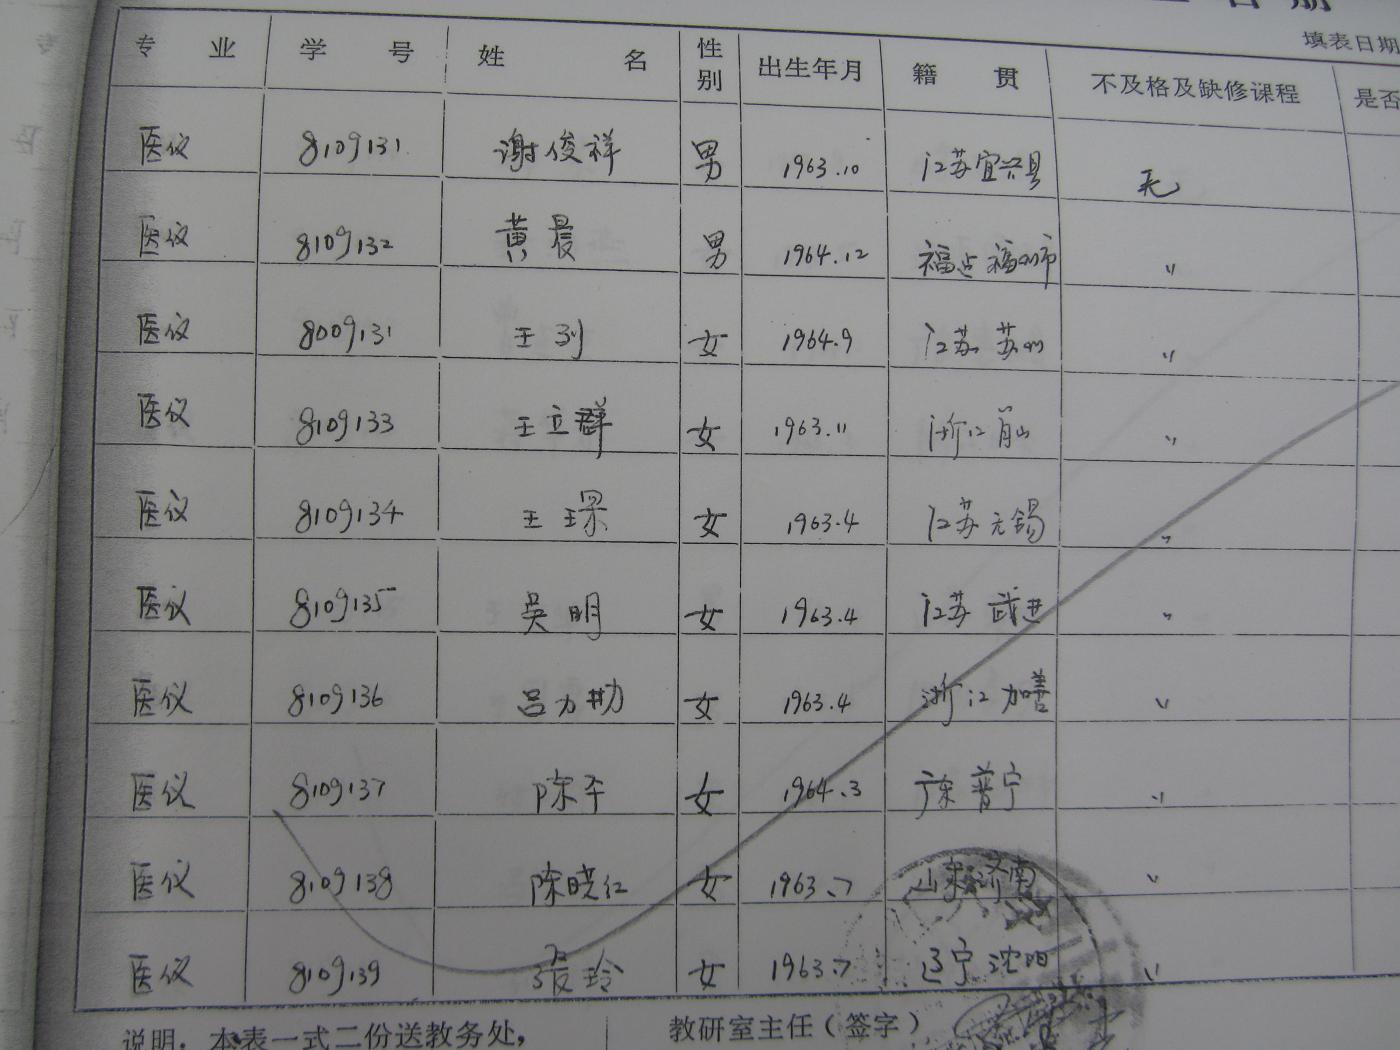 填表日期
专 业 学 号 姓 名 性别 出生年月 籍 贯 不及格及缺修课程 是否
医仪 8109131 谢俊祥 男 1963.10 江苏宜兴县 无
医仪 8109132 黄晨 男 1964.12 福建福州市 〃
医仪 8009131 王列 女 1964.9 江苏 苏州 〃
医仪 8109133 王立群 女 1963.11 浙江萧山 〃
医仪 8109134 王琛 女 1963.4 江苏无锡 〃
医仪 8109135 吴明 女 1963.4 江苏 武进 〃
医仪 8109136 吕力勎 女 1963.4 浙江 加善 〃
医仪 8109137 陈平 女 1964.3 广东 普宁 〃
医仪 8109138 陈晓红 女 1963.7 山东济南 〃
医仪 8109139 张玲 女 1963.7 辽宁沈阳 〃
说明：本表一式二份送教务处， 教研室主任（签字）